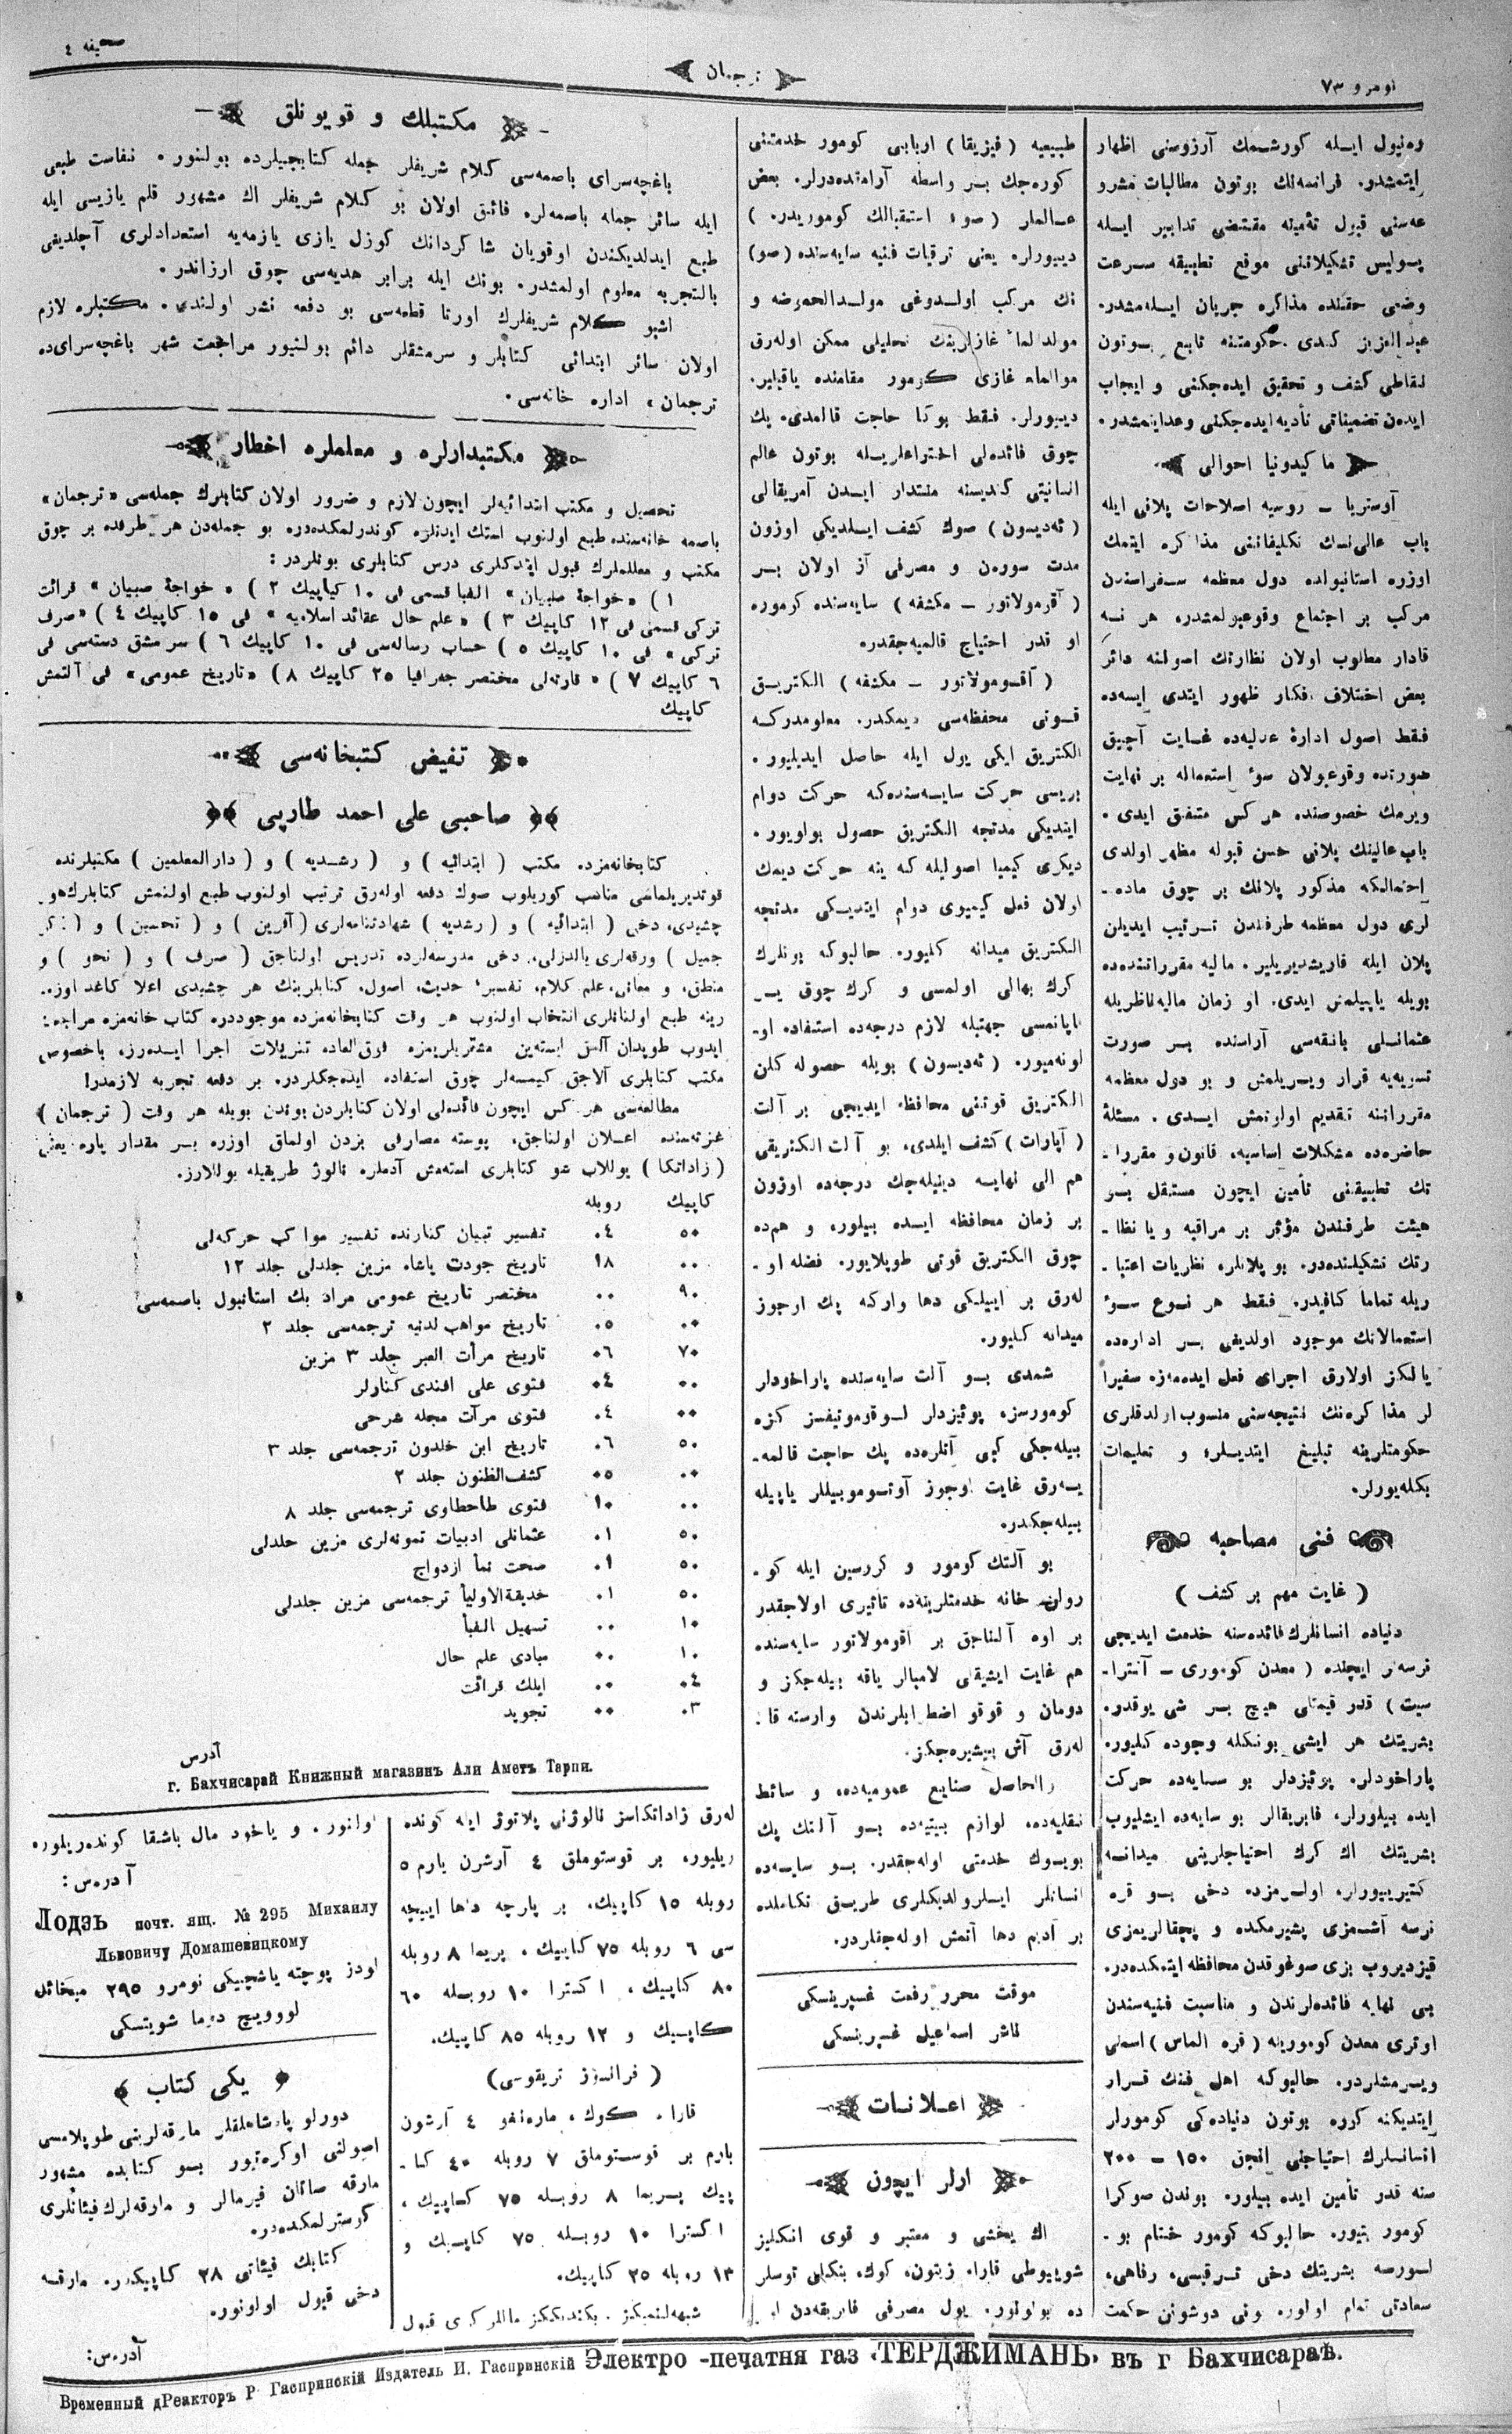 نومرو ٧٣
ترجمان
صحيفه ٤
ره‌نيول ايله كورشمك آرزوسنى اظهار
ايتمشدر. فرانسه‌نك بوتون مطالبات مشرو
عه‌سنى قبول تأمينه مقتضى تدابير ايله
پوليس تشكيلاتنى موقع تطبيقه سرعت
وضعى حقنده مذاكره جريان ايله‌مشدر.
عبدالعزيز كندى حكومتنه تابع بوتون
نقاطى كشف و تحقيق ايده‌جكنى و ايجاب
ايدن تضميناتى تأديه ايده‌جكنى وعد ايتمشدر.
ماكيدونيا احوالى
آوستريا ــ روسيه اصلاحات پلانى ايله
باب عالى‌نك تكليفاتنى مذاكره ايتمك
اوزره استانبولده دول معظمه سفراسندن
مركب بر اجتماع وقوعبولمشدر. هر نه
قادار مطلوب اولان نظارتك اصولنه دائر
بعض اختلاف افكار ظهور ايتدى ايسه‌ده
فقط اصول ادارۀ عدليه‌ده غايت آچيق
صورتده وقوعبولان سوء استعماله بر نهايت
ويرمك خصوصنده هر كس متفق ايدى.
باب عالينك پلانى حسن قبوله مظهر اولدى
احتمالكه مذكور پلانك بر چوق ماده‌ــ
لرى دول معظمه طرفندن ترتيب ايديلن
پلان ايله قاريشديريلير. ماليه مقرراتنده‌ده
بويله ياپيلمش ايدى. او زمان ماليه ناظريله
عثمانلى بانقه‌سى آراسنده بر صورت
تسويه‌يه قرار ويريلمش و بو دول معظمه
مقرراتنه تقديم اولونمش ايدى. مسئلۀ
حاضره‌ده مشكلات اساسيه، قانون و مقررا‌ــ
تك تطبيقنى تأمين ايچون مستقل بر
هيئت طرفندن مؤثر بر مراقبه و يا نظا‌ــ
رتك تشكيلنده‌در. بو پلانلر، نظريات اعتبا‌ــ
ريله تماما كافيدر. فقط هر نوع سوء
استعمالانك موجود اولديغى بر اداره‌ده
يالكز اولارق اجراى فعل ايده‌مه‌ز. سفيرا
لر مذاكره‌نك نتيجه‌سنى منسوب اولدقلرى
حكومتلرينه تبليغ ايتديلر، و تعليمات
بكله‌يورلر.
فنى مصاحبه
( غايت مهم بر كشف )
دنياده انسانلرك فائده‌سنه خدمت ايديجى
نرسه‌لر ايچنده ( معدن كومورى ــ آنترا‌ــ
سيت ) قدر قيمتلى هيچ بر شى يوقدر.
بشريتك هر ايشى بونكله وجوده كليور.
پاراخودلر، پوئيزدلر بو سايه‌ده حركت
ايده بيلورلر، فابريقالر بو سايه‌ده ايشليوب
بشريتك اك كرك احتياجلرينى ميدانه
كتيريپورلر، اولرمزده دخى بو قره
نرسه آشمزى پشيرمكده و پچقالريمزى
قيزديروب بزى صوغوقدن محافظه ايتمكده‌در.
بى نهايه فائده‌لرندن و مناسبت فنيه‌سندن
اوترى معدن كومورينه ( قره الماس ) اسمنى
ويرمشلردر. حالبوكه اهل فنك قرار
ايتديكنه كوره بوتون دنياده‌كى كومورلر
انسانلرك احتياجنى انجق ١٥٠ ــ ٢٠٠
سنه قدر تأمين ايده بيلور. بوندن صوكرا
كومور بتيور. حالبوكه كومور ختام بو‌ــ
لورسه بشريتك دخى ترقيسى، رفاهى،
سعادتى تمام اولور. ونى دوشونن حكمت
طبيعيه ( فيزيقا ) اربابى كومور خدمتنى
كوره‌جك بر واسطه آرامنده‌درلر. بعض
عالملر ( صوء استقبالك كوموريدر. )
ديبورلر. يعنى ترقيات فنيه سايه‌سنده ( صو )
نك مركب اولدوغى مولد الحموضه و
مولد الماء غازلرينك تحليلى ممكن اوله‌رق
مولدالماء غازى كومور مقامنده ياقيلير.
ديبورلر. فقط بوكا حاجت قالمدى. پك
چوق فائده‌لى اختراعلريله بوتون عالم
انسانيتى كنديسنه منتدار ايدن آمريقالى
( ئه‌ديسون ) صوك كشف ايلديكى اوزون
مدت سوره‌ن و مصرفى آز اولان بر
( آقومولاتور ــ مكشفه ) سايه‌سنده كوموره
او قدر احتياج قالميه‌جقدر.
( آقومولاتور ــ مكشفه ) الكتريق
قوتى محفظه‌سى ديمكدر. معلومدركه
الكتريق ايكى يول ايله حاصل ايديليور.
بريسى حركت سايه‌سنده‌كه حركت دوام
ايتديكى مدتجه الكتريق حصول بولويور.
ديكرى كيميا اصوليله كه ينه حركت ديمك
اولان فعل كيميوى دوام ايتديكى مدتجه
الكتريق ميدانه كليور. حالبوكه بونلرك
كرك بهالى اولمسى و كرك چوق ير‌ــ
ياپانمسى جهتيله لازم درجه‌ده استفاده او‌ــ
لونه‌ميور. ( ئه‌ديسون ) بويله حصوله كلن
الكتريق قوتنى محافظه ايديجى بر آلت
( آپارات ) كشف ايلدى، بو آلت الكتريقى
هم الى نهايه دينيله‌جك درجه‌ده اوزون
بر زمان محافظه ايده بيلور، و هم‌ده
چوق الكتريق قوتى طوپلايور. فضله او‌ــ
له‌رق بر ايبيلكى دها واركه پك ارجوز
ميدانه كليور.
شمدى بو آلت سايه‌سنده پاراخودلر
كومورسز، پوئيزدلر لوقوموتيفسز كزه
بيله‌جكى كبى آتلره‌ده پك حاجت قالمه‌ــ
يه‌رق غايت اوجوز آوتوموبيللر ياپيله
بيله‌جكدر.
بو آلتك كومور و كروسين ايله كو‌ــ
رولن خانه خدمتلرينه‌ده تأثيرى اولاجقدر
بر اوه آلناجق بر آقومولاتور سايه‌سنده
هم غايت ايشيقلى لامبالر ياقه بيله‌جكز و
دومان و قوقو اضطرابلرندن وارسته قا‌ــ
له‌رق آش پيشيره‌جكز.
والحاصل صنايع عموميه‌ده، و سائط
نقليه‌ده، لوازم بيتيه‌ده بو آلتك پك
بويوك خدمتى اوله‌جقدر. بو سايه‌ده
انسانلر ايلرولديكلرى طريق تكاملده
بر آديم دها آتمش اوله‌جقلردر.
موقت محرر رفعت غسپرينسكى
ناشر اسماعيل غسپرينسكى
اعلانات
ارلر ايچون
اك يخشى و معتبر و قوى انكليز
شوييوطى قارا، زيتون، كوك، بنكلى توسلر
ده بولونور. يول مصرفى فابريقه‌دن او‌ــ
له‌رق زاداتكاسز نالوژنى پلاتوژ ايله كونده
ريليور، بر قوستوملق ٤ آرشون يارم ٥
روبله ١٥ كاپيك، بر پارچه دها اييجه
سى ٦ روبله ٧٥ كاپيك، پريما ٨ روبله
٨٠ كاپيك، اكسترا ١٠ روبله ٦٠
كاپيك و ١٢ روبله ٨٥ كاپيك.
( فرانسوز تريقوسى )
قارا، كوك، مارەنغو ٤ آرشون
يارم بر قوستوملق ٧ روبله ٤٠ كا‌ــ
پيك پريما ٨ روبله ٧٥ كاپيك،
اكسترا ١٠ روبله ٧٥ كاپيك و
١٣ روبله ٢٥ كاپيك.
شبهه‌لنميكز. بكنديككز ماللر كرى قبول
اولنور، و ياخود مال باشقا كونده‌ريلور،
آدرس:
Лодзь почт. ящ. № 295 Михаилу
Львовичу Домашевицкому
لودز پوچته ياشچيكى نومرو ٢٩٥ ميخائل
لووويچ دوما شويتسكى
يكى كتاب
دورلو پادشاهلقلر مارقه‌لرينى طوپلامسى
اصولنى اوكره‌تيور بو كتابده مشهور
مارقه صاتان فيرمالر و مارقه‌لرك فيئاتلرى
كوسترلمكده‌در.
كتابك فيئاتى ٢٨ كاپيكدر. مارقه
دخى قبول اولونور.
آدرس:
مكتبلك و قويونلق
باغچه‌سراى باصمه‌سى كلام شريفلر جمله كتابجيلرده بولنور. نفاست طبعى
ايله سائر جمله باصمه‌لره فائق اولان بو كلام شريفلر اك مشهور قلم يازيسى ايله
طبع ايدلديكندن اوقويان شاكردانك كوزل يازى يازمه‌يه استعدادلرى آچلديغى
بالتجربه معلوم اولمشدر. بونك ايله برابر هديه‌سى چوق ارزاندر.
اشبو كلام شريفلرك اورتا قطعه‌سى بو دفعه نشر اولندى. مكتبلره لازم
اولان سائر ابتدائى كتابلر و سرمشقلر دائم بولنيور مراجعت شهر باغچه‌سراى‌ده
ترجمان، اداره خانه‌سى.
مكتبدارلره و معلملره اخطار
تحصيل و مكتب ابتدائيه‌لر ايچون لازم و ضرور اولان كتابلرك جمله‌سى «ترجمان»
باصمه خانه‌سنده طبع اولنوب استك ايدنلره كوندرلمكده‌در. بو جمله‌دن هر طرفده بر چوق
مكتب و معلملرك قبول ايتدكلرى درس كتابلرى بونلردر:
١) «خواجۀ صبيان» الفبا قسمى فى ١٠ كاپيك ٢) «خواجۀ صبيان» قرائت
تركى قسمى فى ١٢ كاپيك ٣) «علم حال عقائد اسلاميه» فى ١٥ كاپيك ٤) «صرف
تركى» فى ١٠ كاپيك ٥) حساب رساله‌سى فى ١٠ كاپيك ٦) سر مشق دسته‌سى فى
٦ كاپيك ٧) «قارته‌لى مختصر جغرافيا ٢٥ كاپيك ٨) «تاريخ عمومى» فى آلتمش
كاپيك
تفيض كتبخانه‌سى
صاحبى على احمد طارپى
كتابخانه‌مزده مكتب ( ابتدائيه ) و ( رشديه ) و ( دار المعلمين ) مكتبلرنده
قوتديريلماسى مناسب كوريلوب صوك دفعه اوله‌رق ترتيب اولنوب طبع اولنمش كتابلرك هر
چشيدى، دخى ( ابتدائيه ) و ( رشديه ) شهادتنامه‌لرى ( آفرين ) و ( تحسين ) و ( ذكر
جميل ) ورقه‌لرى يالدزلى، دخى مدرسه‌لرده تدريس اولناجق ( صرف ) و ( نحو ) و
منطق، و معانى، علم كلام، تفسير، حديث، اصول، كتابلرينك هر چشيدى اعلا كاغد اوز‌ــ
رينه طبع اولنانلرى انتخاب اولنوب هر وقت كتابخانه‌مزده موجوددر، كتاب خانه‌مزه مراجعت
ايدوب طوپدان آلمق ايسته‌ين مشتريلريمزه فوق‌العاده تنزيلات اجرا ايده‌رز، باخصوص
مكتب كتابلرى آلاجق كيمسه‌لر چوق استفاده ايده‌جكلردر. بر دفعه تجربه لازمدر!
مطالعه‌سى هر كس ايچون فائده‌لى اولان كتابلردن بوندن بويله هر وقت ( ترجمان )
غزته‌سنده اعلان اولناجق، پوسته مصارفى بزدن اولماق اوزره بر مقدار پاره يعنى
( زاداتكا ) يوللاب شو كتابلرى استه‌مش آدملره نالوژ طريقيله يوللارز.
كاپيك روبله
٥٠ ٠٤ تفسير تبيان كنارنده تفسير مواكب حركه‌لى
٠٠ ١٨ تاريخ جودت پاشا، مزين جلدلى جلد ١٢
٩٠ ٠٠ مختصر تاريخ عمومى مراد بك استانبول باصمه‌سى
٠٠ ٠٥ تاريخ مواهب لدنيه ترجمه‌سى جلد ٢
٧٠ ٠٦ تاريخ مرأت العبر جلد ٣ مزين
٠٠ ٠٤ فتوى على افندى كنارلر
٠٠ ٠٤ فتوى مرآت مجله شرحى
٥٠ ٠٦ تاريخ ابن خلدون ترجمه‌سى جلد ٣
٠٠ ٠٥ كشف‌الظنون جلد ٢
٠٠ ١٠ فتوى طاحطاوى ترجمه‌سى جلد ٨
٥٠ ٠١ عثمانلى ادبيات نمونه‌لرى مزين جلدلى
٥٠ ٠١ صحت نمأ ازدواج
٥٠ ٠١ حديقةالاوليأ ترجمه‌سى مزين جلدلى
١٠ ٠٠ تسهيل الفبأ
١٠ ٠٠ مبادى علم حال
٠٤ ٠٠ ايلك قرائت
٠٣ ٠٠ تجويد
آدرس
г. Бахчисарай Книжный магазинъ Али Аметъ Тарпи.
Временный дРеакторъ Р Гаспринскій Издатель И. Гаспринскій Электро -печатня газ «ТЕРДЖИМАНЬ» въ г Бахчисараѣ.